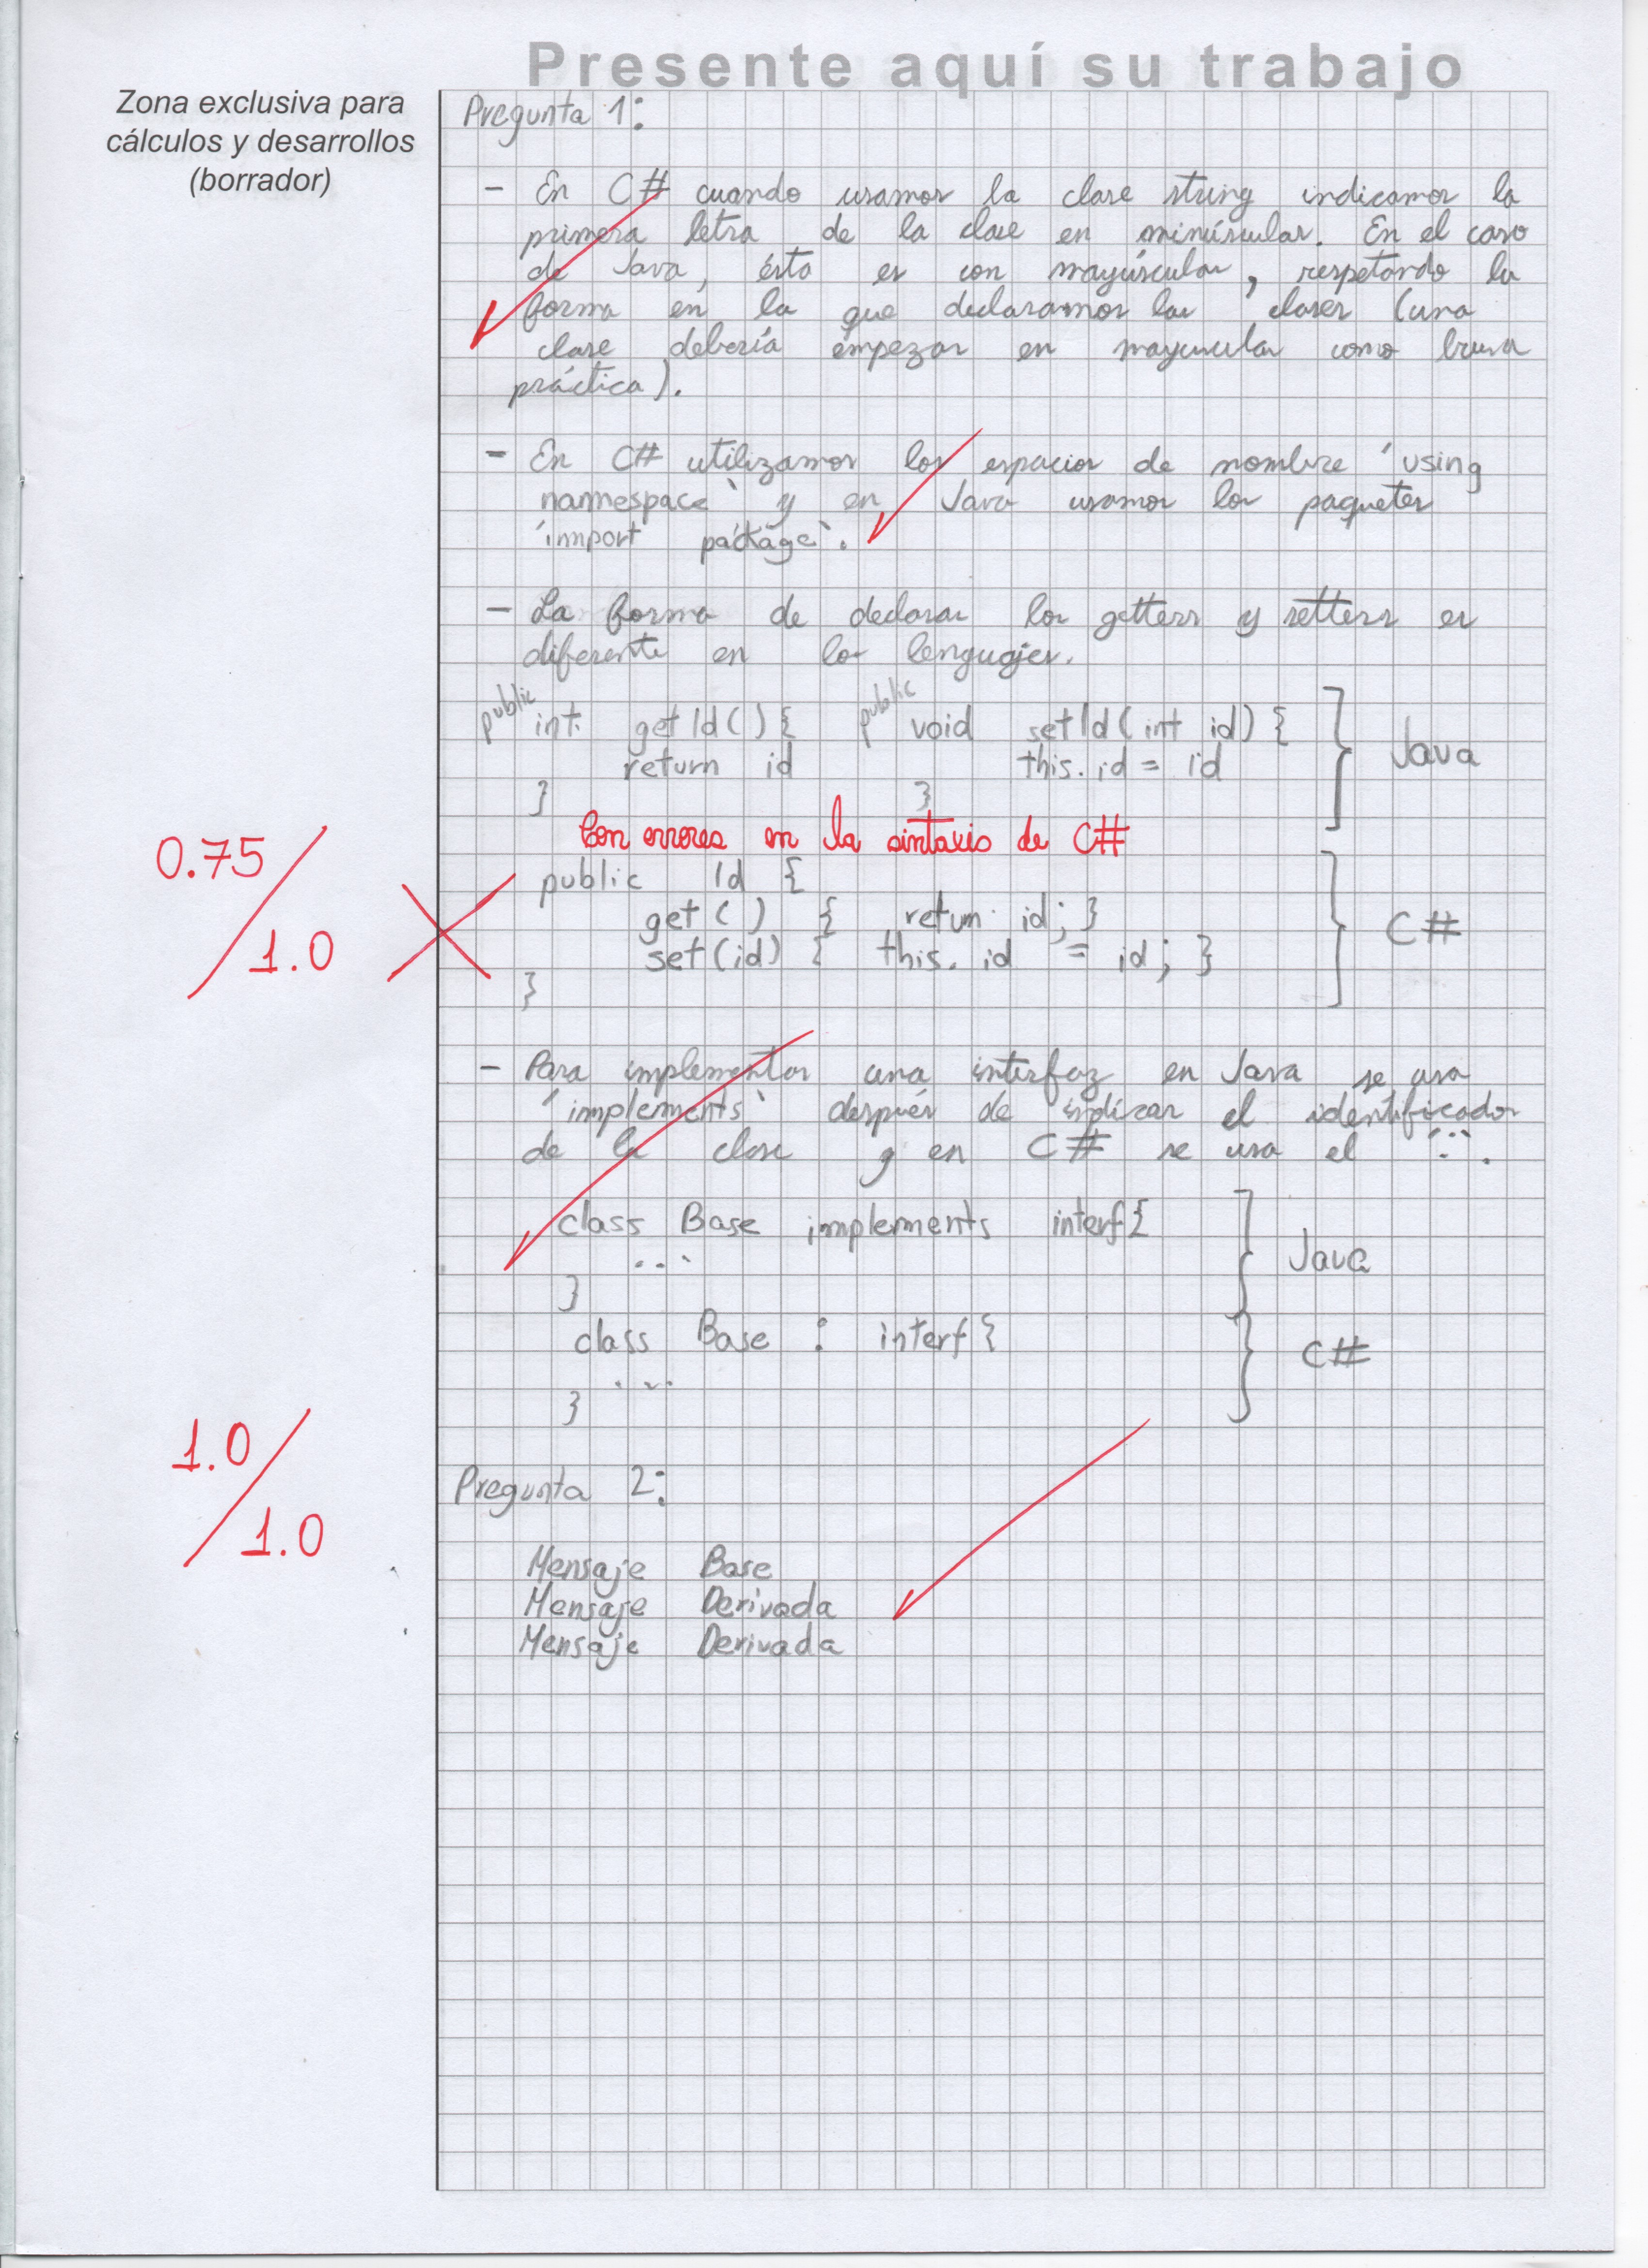 Presente aquí su trabajo
Zona exclusiva para
cálculos y desarrollos
(borrador)
Pregunta 1:
- En C# cuando usamos la clase string indicamos la
primera letra de la clase en minúsculas. En el caso
de Java, ésto es con mayúsculas, respetando la
forma en la que declaramos las clases (una
clase debería empezar en mayusculas como buena
práctica).
- En C# utilizamos los espacios de nombre 'using
namespace' y en Java usamos los paquetes
'import package'.
- La forma de declarar los getters y setters es
diferente en los lenguajes.
public int getId() { public void setId(int id) {
return id this.id = id
} }
Java
Con errores en la sintaxis de C#
0.75/1.0
public Id {
get() { return id; }
set(id) { this.id = id; }
}
C#
- Para implementar una interfaz en Java se usa
'implements' después de indicar el identificador
de la clase y en C# se usa el ':'.
class Base implements interf{
...
}
Java
class Base : interf{
...
}
C#
1.0/1.0
Pregunta 2:
Mensaje Base
Mensaje Derivada
Mensaje Derivada